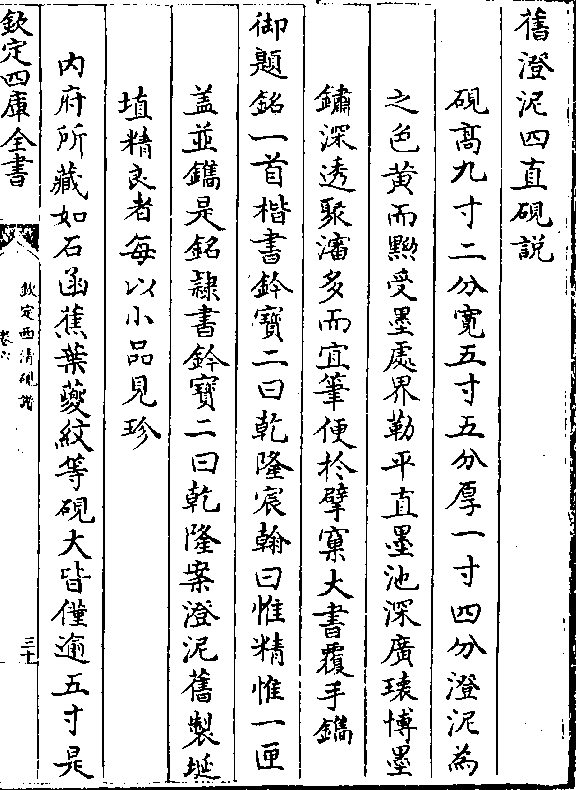 舊澄泥四直硯説
硯髙九寸二分寛五寸五分厚一寸四分澄泥為
之色黄而黝受墨處界勒平直墨池深廣環博墨
鏽深透聚瀋多而宜筆便於擘窠大書覆手鐫
御題銘一首楷書鈐寶二曰乾隆宸翰曰惟精惟一匣
盖並鐫是銘隷書鈐寶二曰乾隆案澄泥舊製埏
埴精良者每以小品見珍
内府所藏如石函蕉葉夔紋等硯大皆僅逾五寸是
欽定四庫全書
欽定西清硯譜
卷六
三十